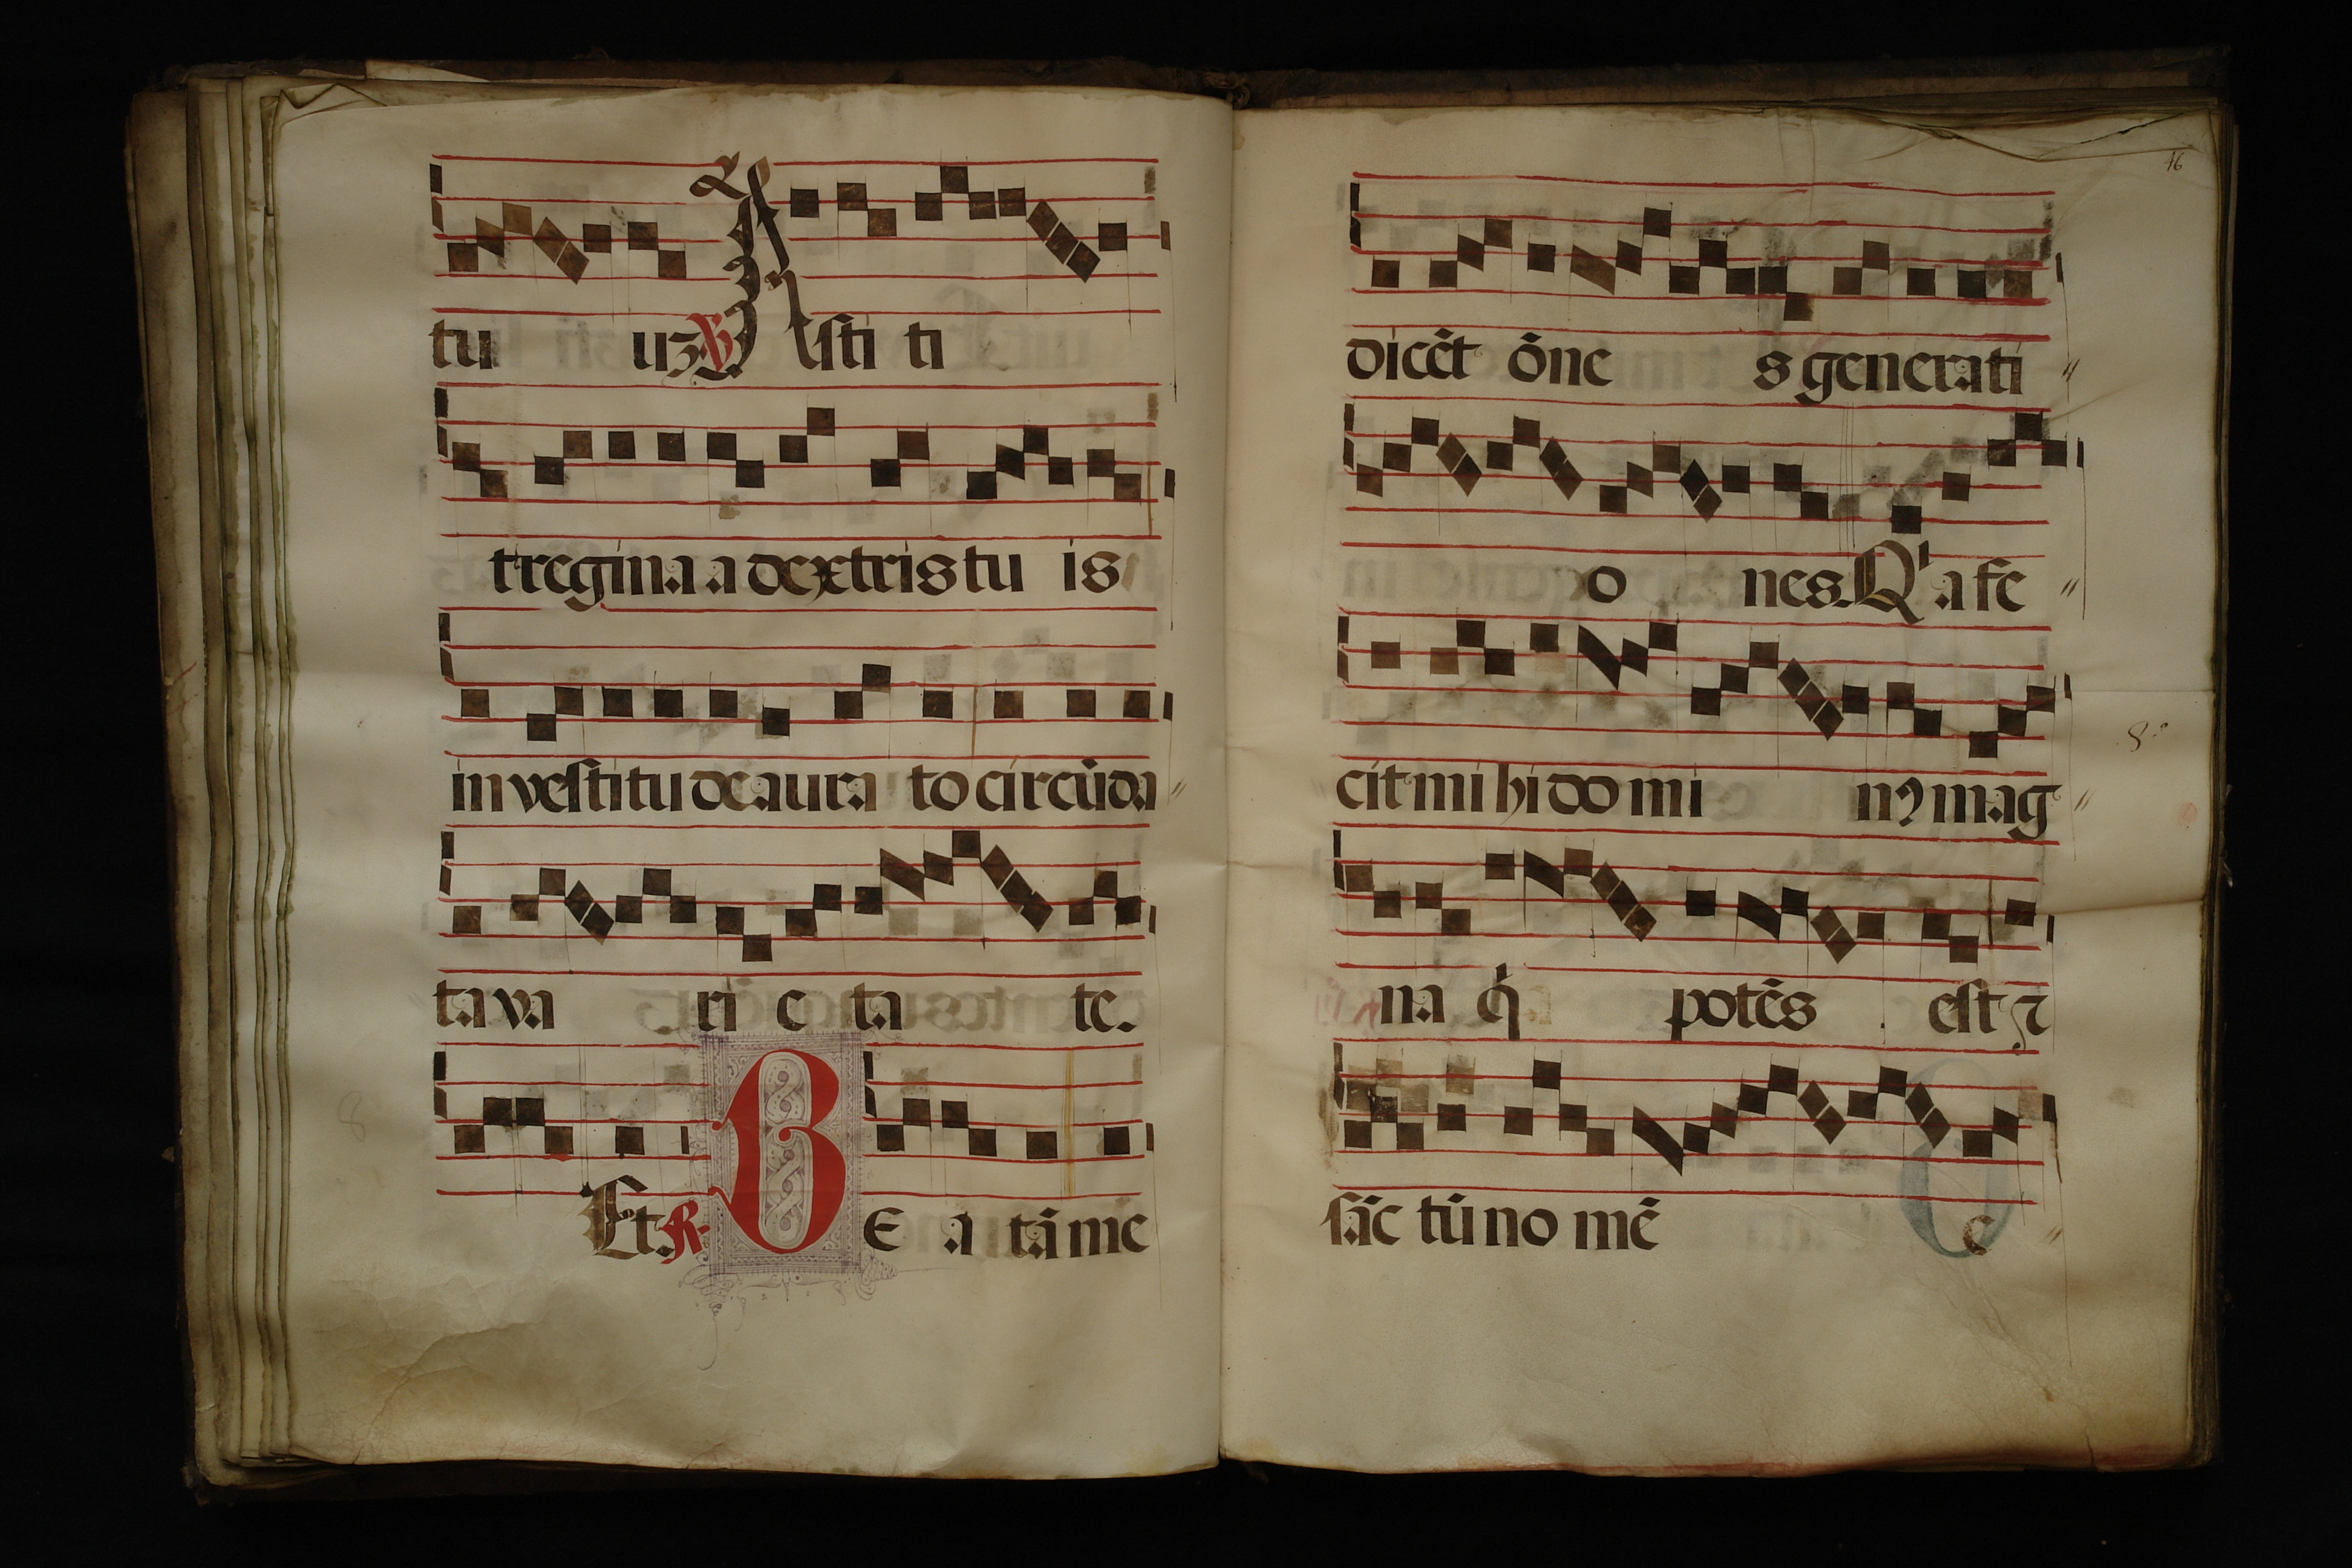 tu uꝫ ℣ Asti ti
t regina a dextris tu is
in vestitu deaura to circūda
ta va ri e ta te.
Et. R. BE a tā me
46
dicēt ōne s generati
o nes. Qⁱ a fe
cit mi hi do mi nꝰ mag
na q̇ potēs est ⁊
sāc tū no mē e